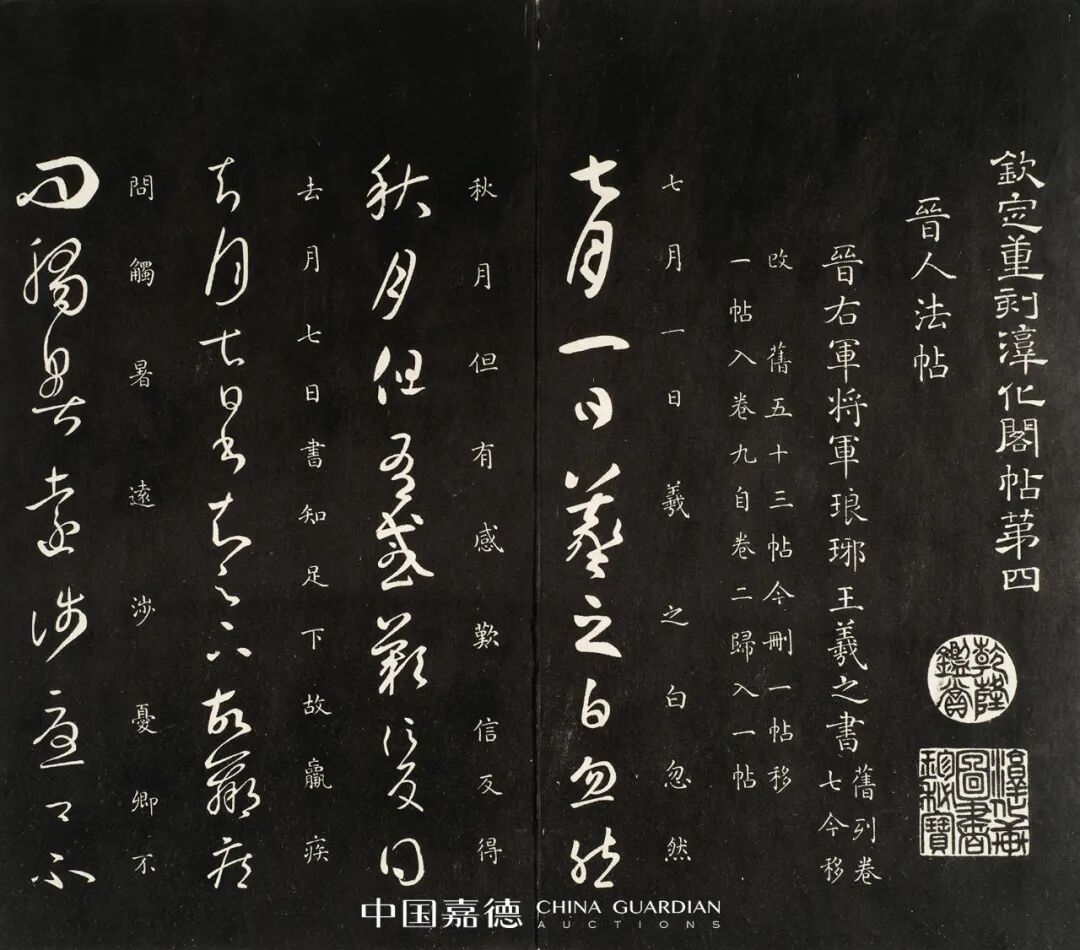 欽定重刻淳化閣帖苐四
乾隆鑑賞
淳化軒圖書珍秘寶
晉人法帖
晉右軍將軍琅琊王羲之書
舊列卷
七今移
改 舊五十三帖今刪一帖移
一帖入卷九自卷二歸入一帖
七月一日羲之白忽然
七月一日羲之白忽然
秋月但有感歎信反得
秋月但有感歎信反得
去月七日書知足下故羸疾
去月七日書知足下故羸疾
問觸暑遠涉憂卿不
問觸暑遠涉憂卿不
中国嘉德 CHINA GUARDIAN
AUCTIONS